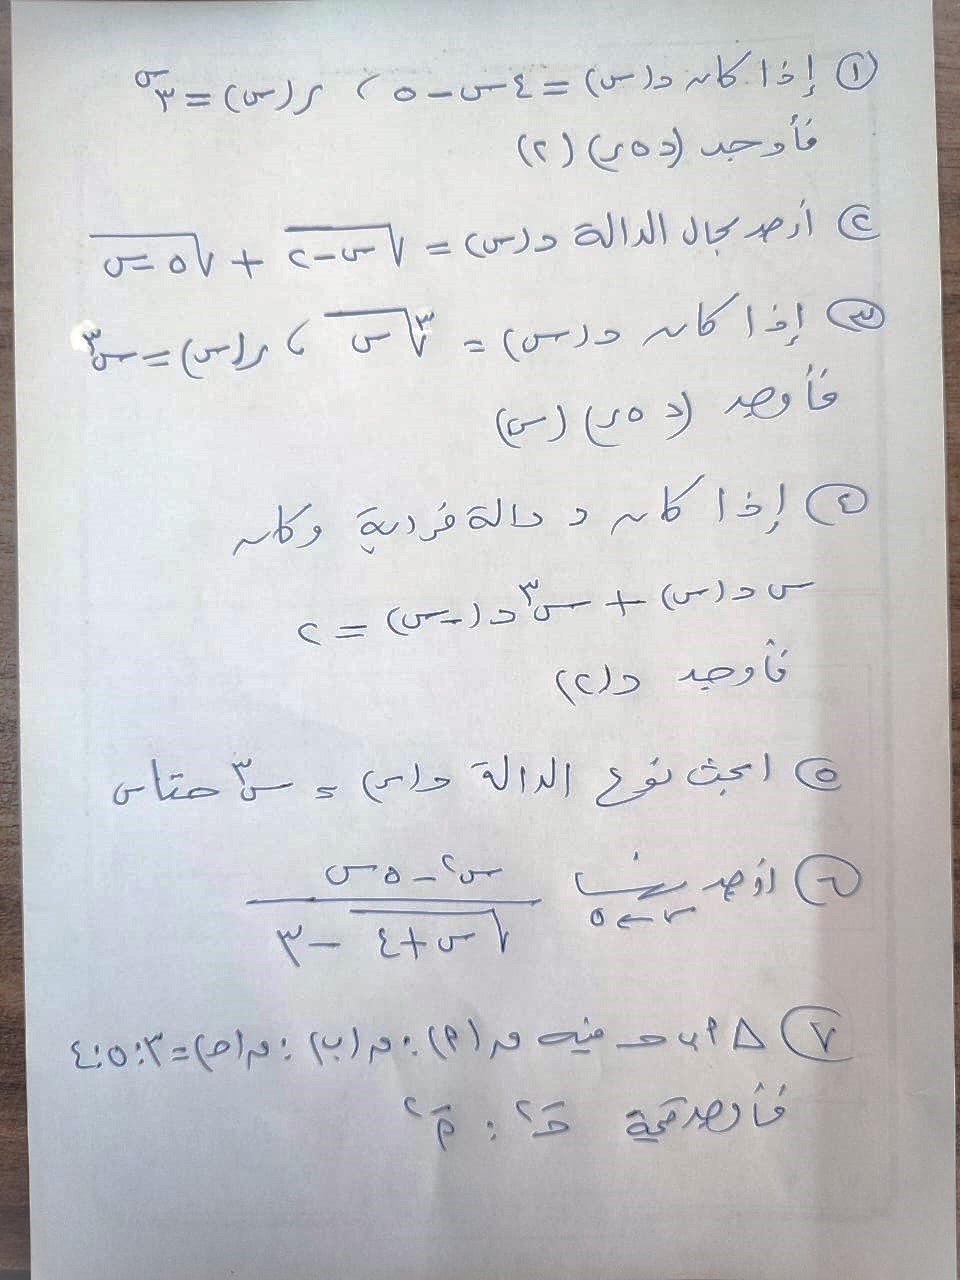 ① إذا كان د(س) = ٤س - ٥ ، ر(س) = ٣^س
فأوجد (د ه ر) (٢)
② أوجد مجال الدالة د(س) = √(س-٢) + √(٥-س)
③ إذا كان د(س) = ∛س ، ر(س) = س³
فأوجد (د ه ر) (س)
④ إذا كان د دالة فردية وكان
س د(س) + س³ د(-س) = ٢
فأوجد د(٢)
⑤ ابحث نوع الدالة د(س) = س³ حتاس
⑥ أوجد نهــا س←٥ (س² - ٥س) / (√(س+٤) - ٣)
⑦ △ أ ب ح فيه ن(أ) : ن(ب) : ن(ح) = ٣ : ٥ : ٤
فأوجد قيمة حَ² : أَ²